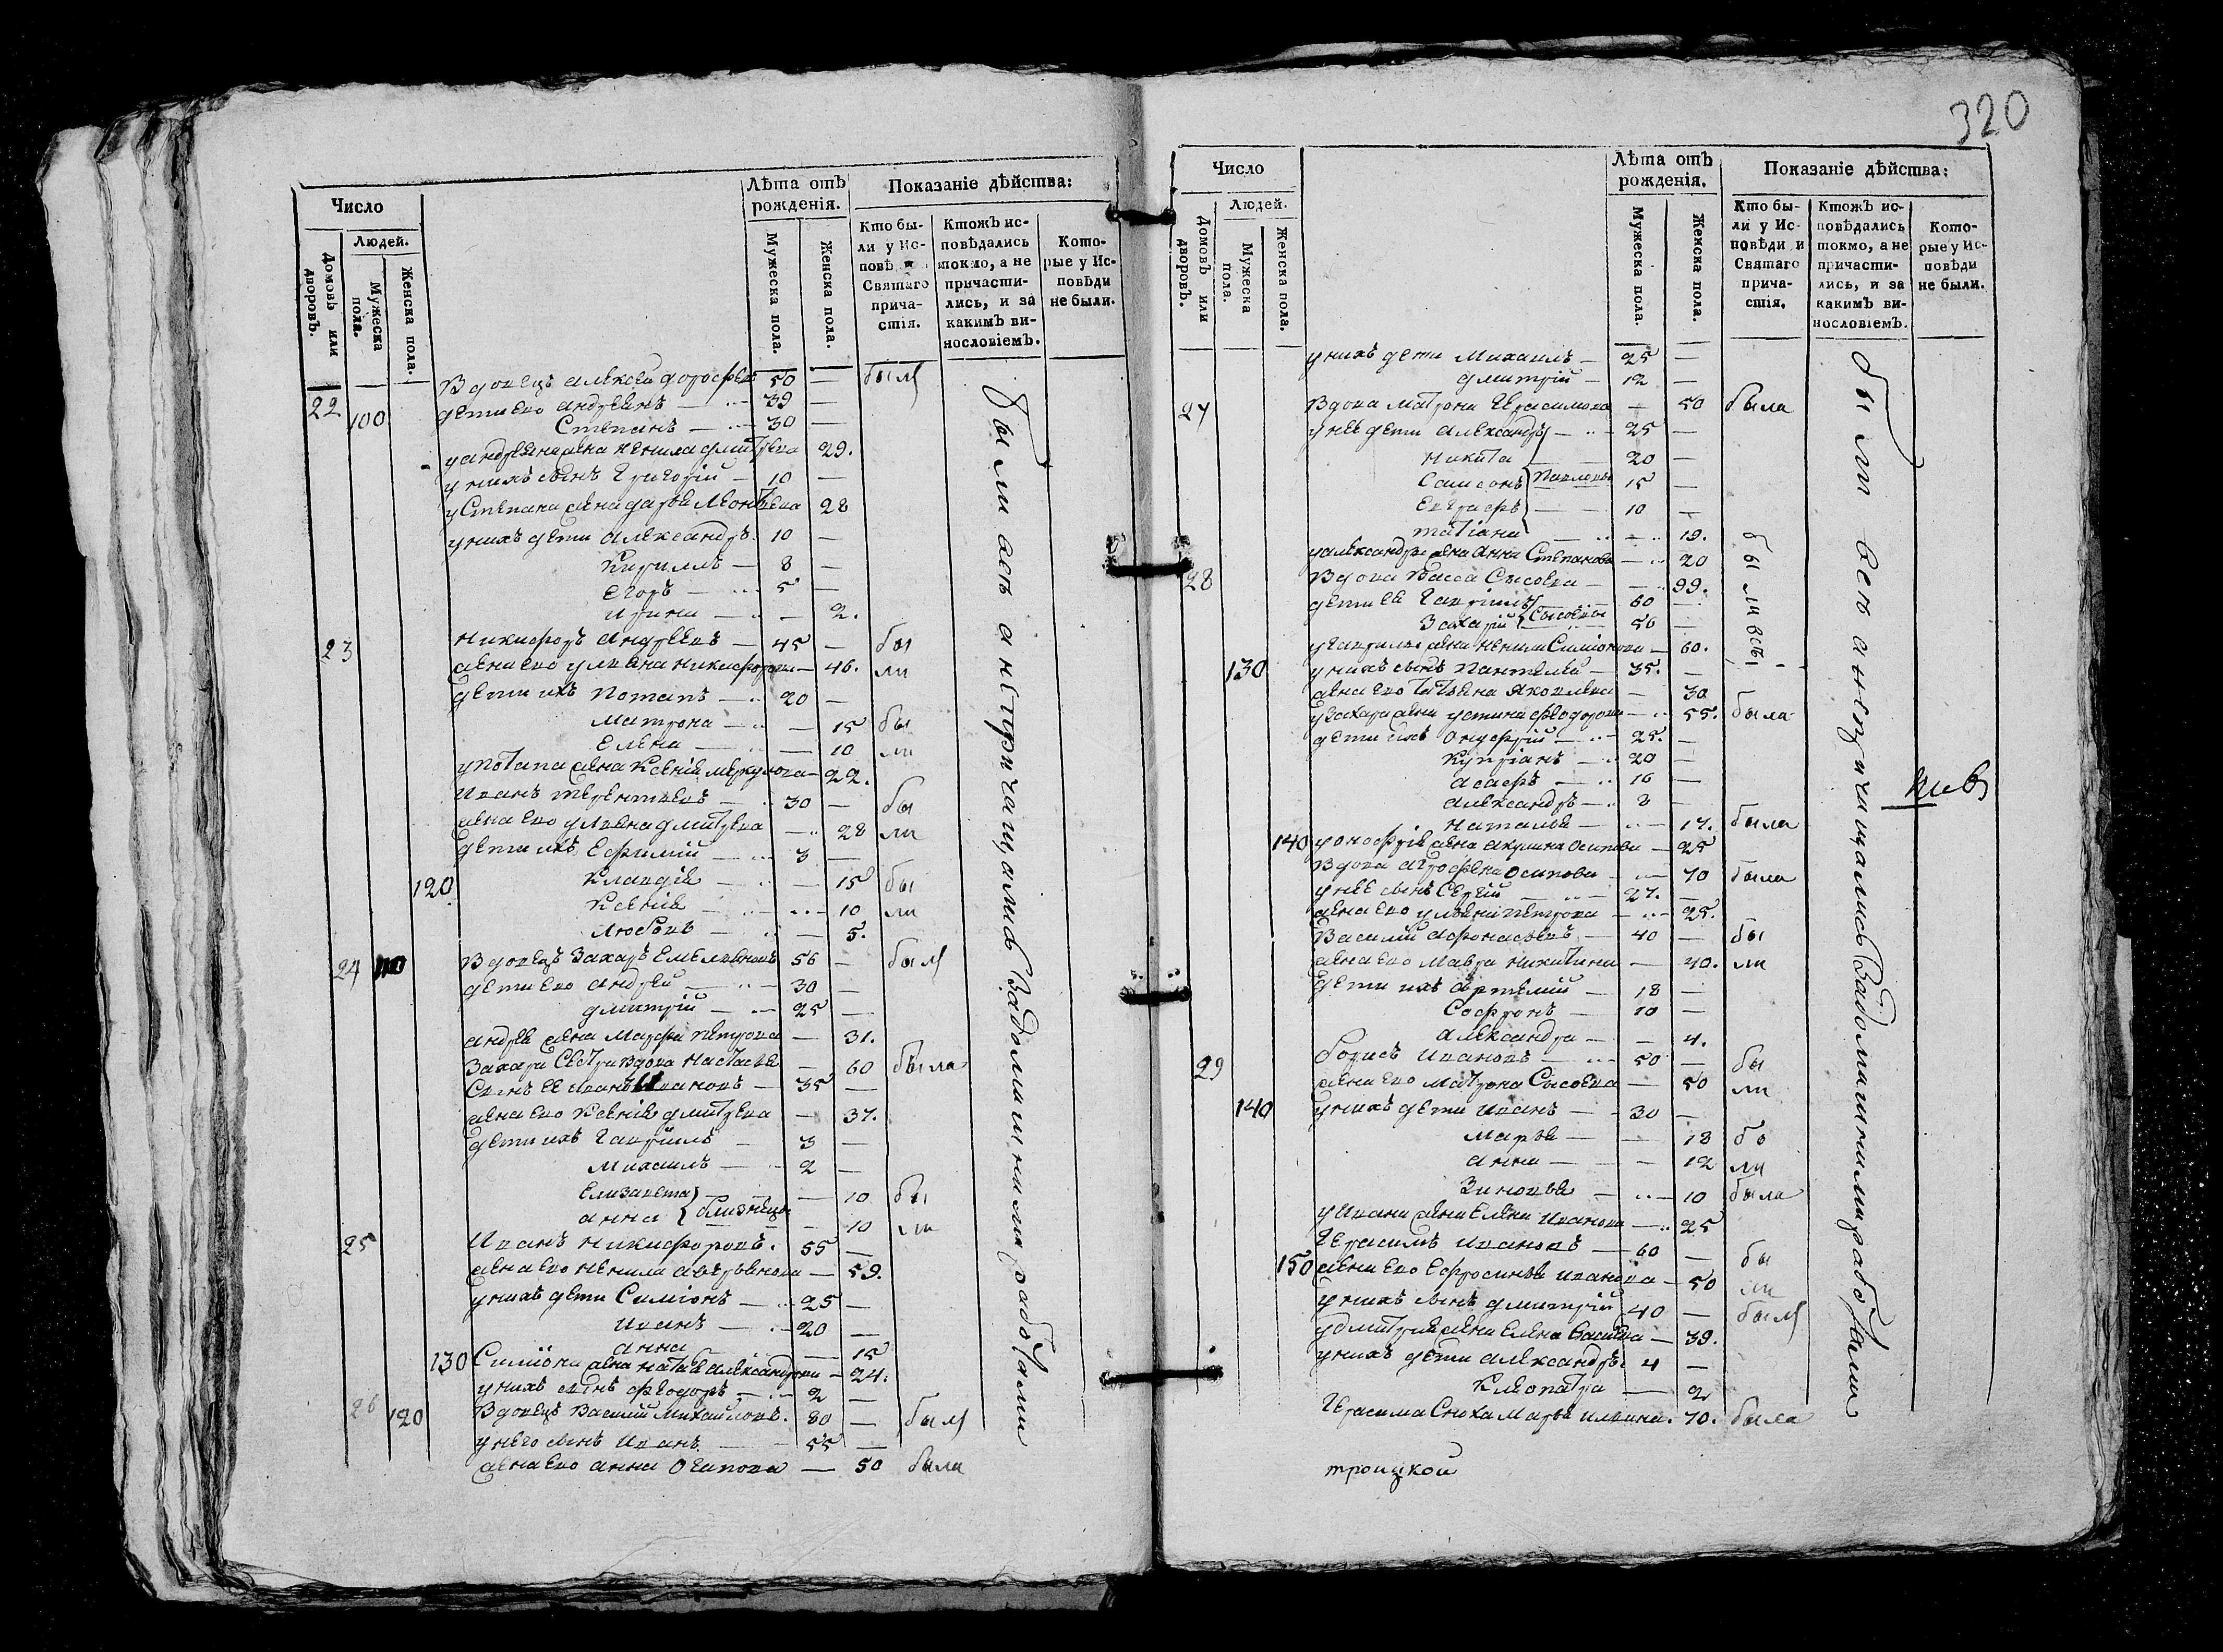 Число
Людей.
Домовъ или дворовъ.
Мужеска пола.
Женска пола.
Лѣта отъ рожденія.
Мужеска пола.
Женска пола.
Показаніе дѣйства:
Кто бы-
ли у Ис-
повѣ
Святаго
прича-
стія.
Ктожъ ис-
повѣдались
токмо, а не
причасти-
лись, и за
какимъ ви-
нословіемъ.
Кото-
рые у Ис-
повѣди
не были.
22 100 Вдовецъ Алексей 50 — былъ
дети ево Андреянъ — 39 —
Степанъ — 30 —
у Андреяна жена Ненила Дмитрева 29.
у нихъ сынъ Григорій — 10 —
у Степана жена Дарья Леонтьева 28
у нихъ дети Александръ 10 —
Кириллъ — 8 —
Егоръ — 5 —
Ирина — — 2.
23 Никифоръ Андреевъ — 45 — бы
жена ево Ульяна Никифорова — 46. ли
дети ихъ Потапъ — 20 —
Матрона — — 15 бы
Елена — — 10 ли
у Потапа жена Ксенія Меркулова — 22.
Иванъ Терентьевъ — 30 — бы
жена ево Ульяна Дмитрева — 28 ли
дети ихъ Ефимій — 3 —
120. Клавдія — — 15 бы
Ксенія — — 10 ли
Любовь — — 5.
24 110 Вдовецъ Захаръ Емельяновъ 56 — былъ
дети ево Андрей — 30 —
Дмитрій — 25 —
Андрея жена Марфа Петрова — 31.
Захара сестра вдова Настасья — 60 была
Сынъ ее Иванъ Ивановъ — 35 —
жена ево Ксенія Дмитрева — 37.
дети ихъ Гавріилъ — 3 —
Михаилъ — 2 —
Елизавета — 10 бы
Анна близнецы — 10 ли
25 Иванъ Никифоровъ. 55 —
жена ево Ненила Аверьянова — 59.
у нихъ дети Симіонъ — 25 —
Иванъ — 20 —
Анна — 15
130 Симіона жена Наталья Александрова — 24.
у нихъ сынъ Феодоръ — 2 —
26 120 Вдовецъ Василій Михайловъ. 80 — былъ
у него сынъ Иванъ — 55 —
жена ево Анна Осипова — 50 была
были всѣ а не причащались за домашними работами
320
Число
Людей.
Домовъ или дворовъ.
Мужеска пола.
Женска пола.
Лѣта отъ рожденія.
Мужеска пола.
Женска пола.
Показаніе дѣйства:
Кто бы-
ли у Ис-
повѣди и
Святаго
прича-
стія.
Ктожъ ис-
повѣдались
токмо, а не
причасти-
лись, и за
какимъ ви-
нословіемъ.
Кото-
рые у Ис-
повѣди
не были.
у нихъ дети Михаилъ — 25 —
Дмитрій — 12 —
27 Вдова Матрона Герасимова — 50 была
у нее дети Александръ — 25 —
Никита — 20 —
Самсонъ Павловы 15 —
Евграфъ — 10 —
Татіана — 19.
у Александра жена Анна Степанова — 20
28 Вдова Васса Сысоева — 99.
дети ее Гавріилъ — 60 —
Захарій Сысоевы 56 —
у Гавріила жена Ненила Симіонова — 60.
130 у нихъ сынъ Пантелей — 35. —
жена ево Татьяна Яковлева — 30
у Захара жена Устинья Феодорова — 55. была
дети ихъ Онуфрій — 25. —
Купріанъ — 20 —
Асафъ — 16 —
Александръ — 8 —
Наталья — 17. была
140 у Онофрія жена Акулина Осипова — 25
Вдова Агрофена Осипова — 70 была
у нее сынъ Сергій — 27. —
жена ево Ульяна Петрова — 25.
Василій Афонасьевъ — 40 — бы
жена ево Мавра Никитина — 40. ли
дети ихъ Артемій — 18 —
Софронъ — 10 —
Александра — — 4.
29 Борисъ Ивановъ — 50 — бы
жена ево Матрона Сысоева — 50 ли
140 у нихъ дети Иванъ — 30 —
Марья — — 18 бы
Анна — — 12 ли
Зиновья — 10 была
у Ивана жена Елена Иванова — 25
Герасимъ Ивановъ — 60 — бы
150 жена ево Ефросинья Иванова — 50 ли
у нихъ сынъ Дмитрій 40 — былъ
у Дмитрія жена Елена — 39.
у нихъ дети Александръ 4 —
Клеопатра — 2
Герасима сноха Марья Ильина. 70. была
были всѣ
были всѣ а не причащались за домашними работами
троицкой